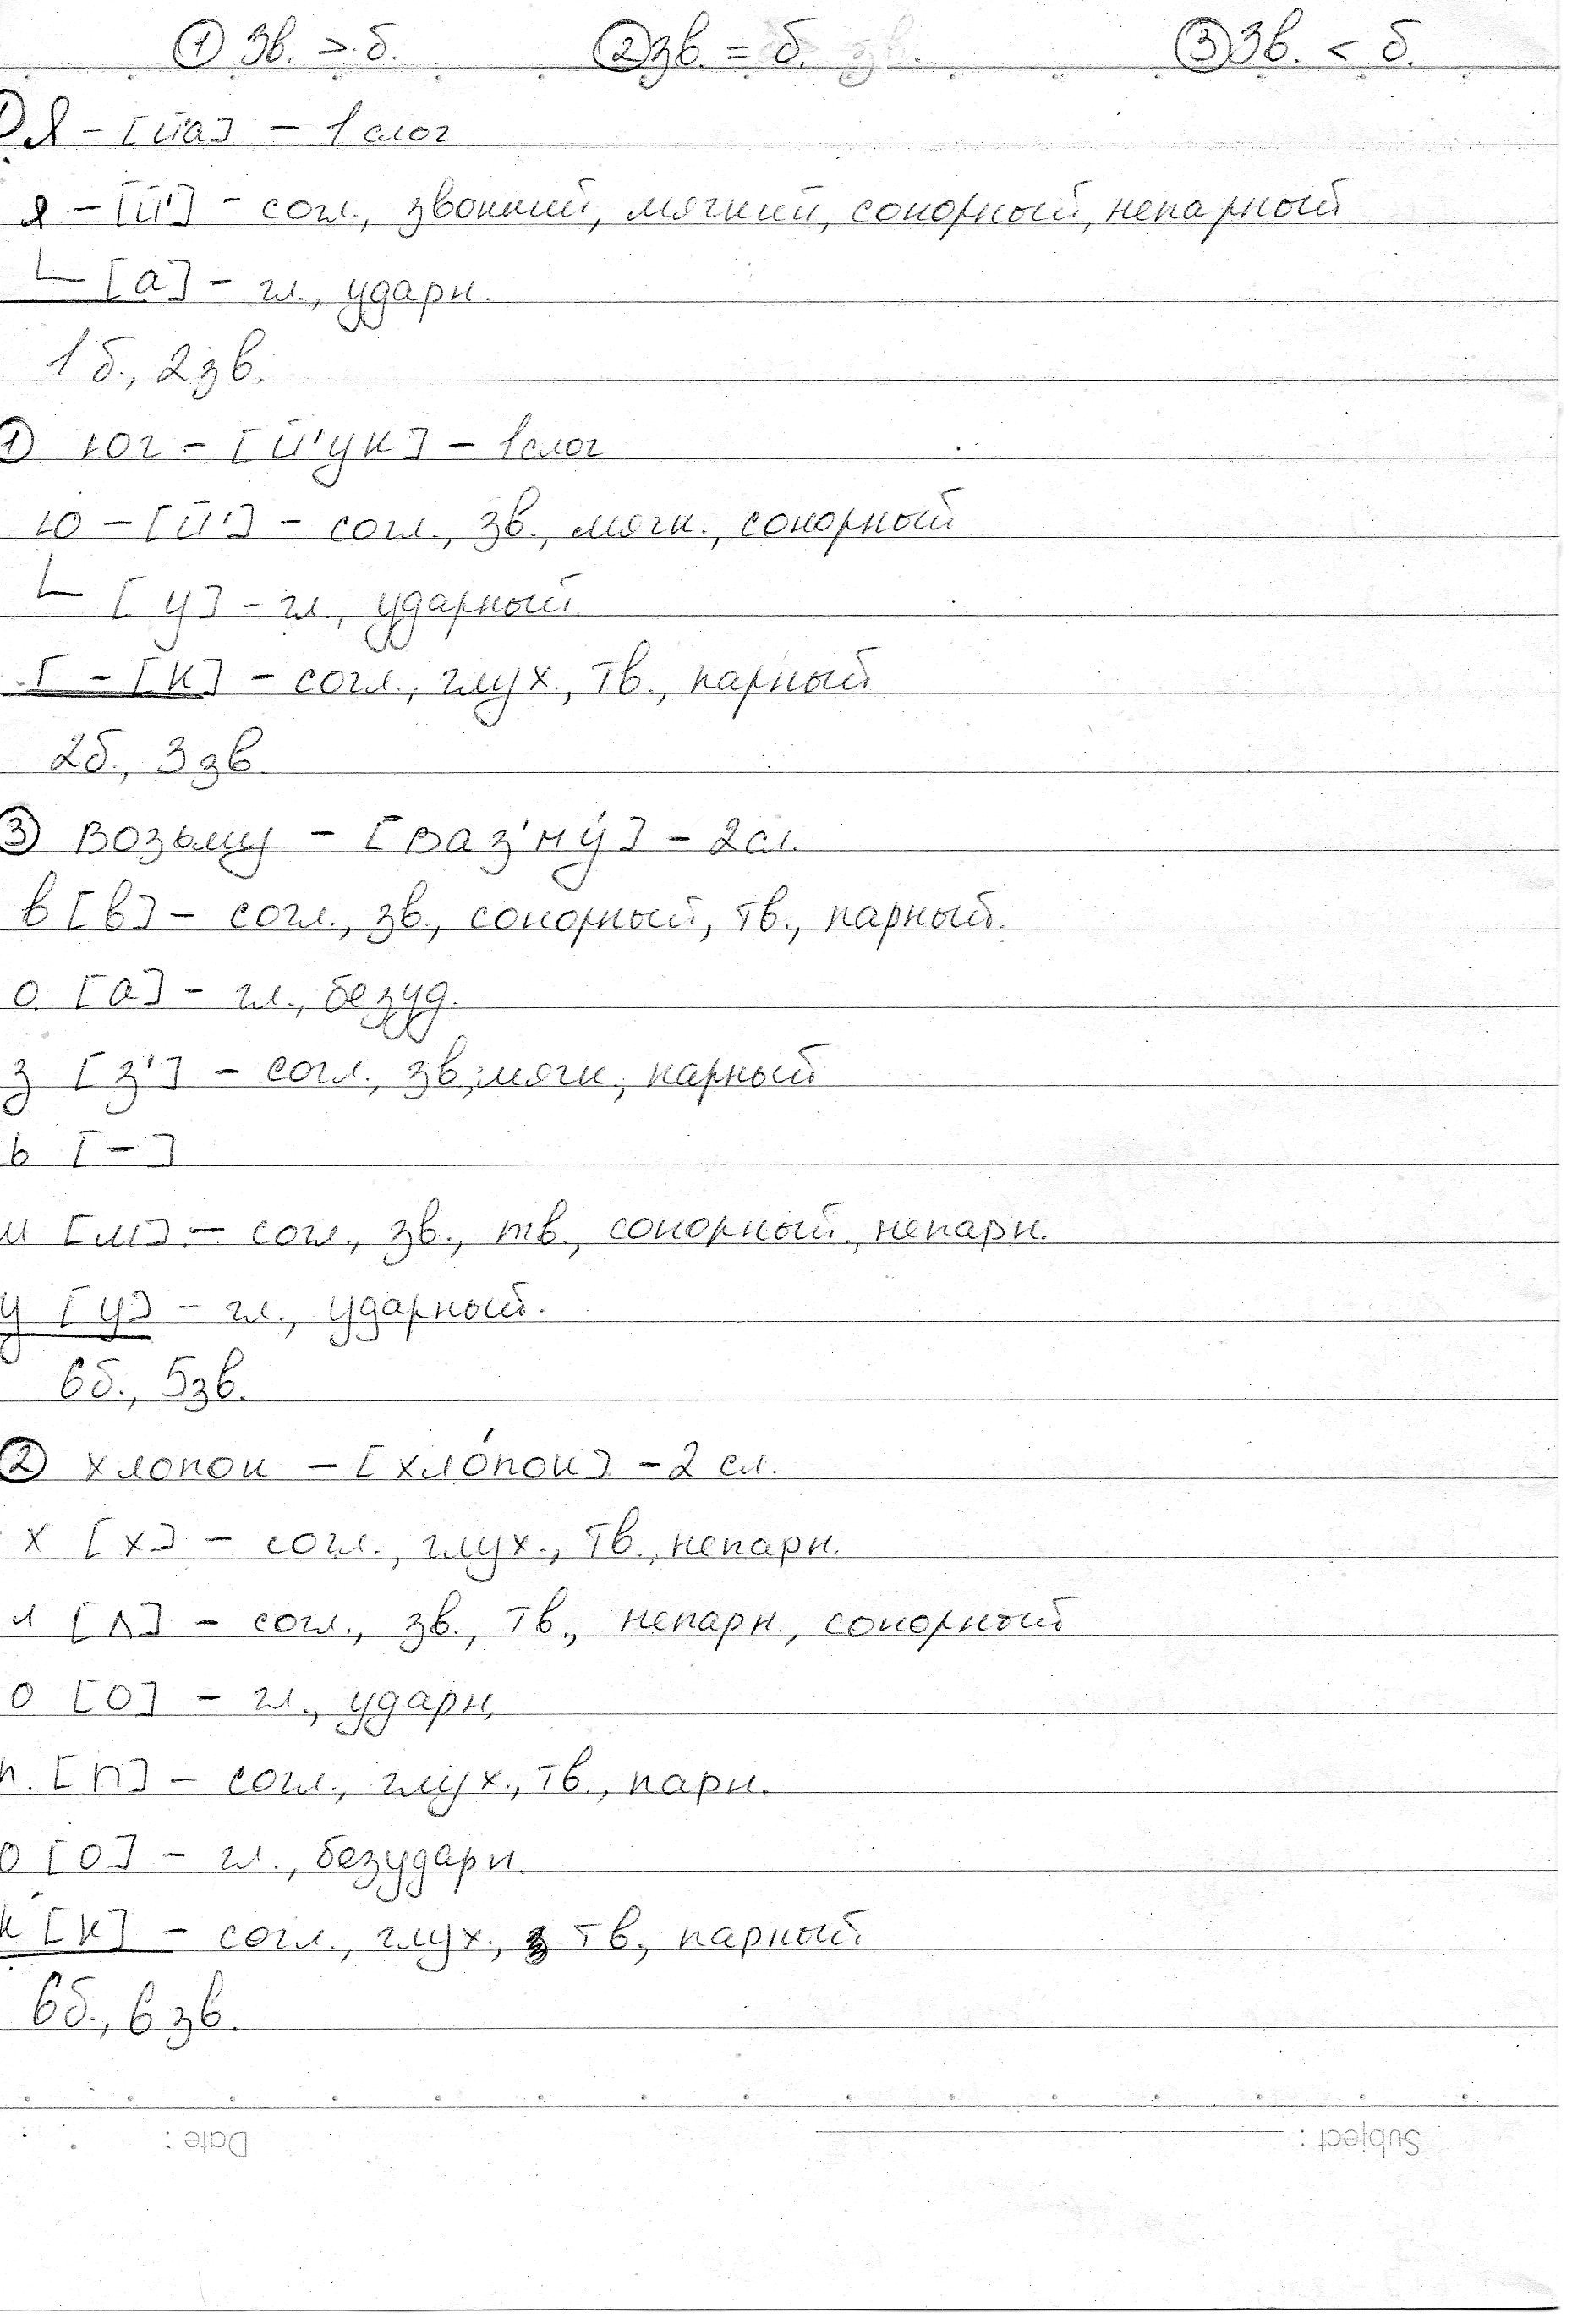 ① Зв. > б. ② зв. = б. зв. ③ Зв. < б.
① Я - [й'а] - 1 слог
я - [й'] - согл., звонкий, мягкий, сонорный, непарный
[а] - гл., ударн.
1 б., 2 зв.
① юг - [й'ук] - 1 слог
ю - [й'] - согл., зв., мягк., сонорный
[у] - гл., ударный.
г - [к] - согл., глух., тв., парный
2 б., 3 зв.
③ возьму - [ваз'мý] - 2 сл.
в [в] - согл., зв., сонорный, тв., парный.
о. [а] - гл., безуд.
з [з'] - согл., зв., мягк., парный
ь [-]
м [м] - согл., зв., тв., сонорный, непарн.
у [у] - гл., ударный.
6 б., 5 зв.
② хлопок - [хлóпок] - 2 сл.
х [х] - согл., глух., тв., непарн.
л [л] - согл., зв., тв., непарн., сонорный
о [о] - гл., ударн,
п. [п] - согл., глух., тв., парн.
о [о] - гл., безударн.
к [к] - согл., глух., тв., парный
6 б., 6 зв.
Subject :
Date :